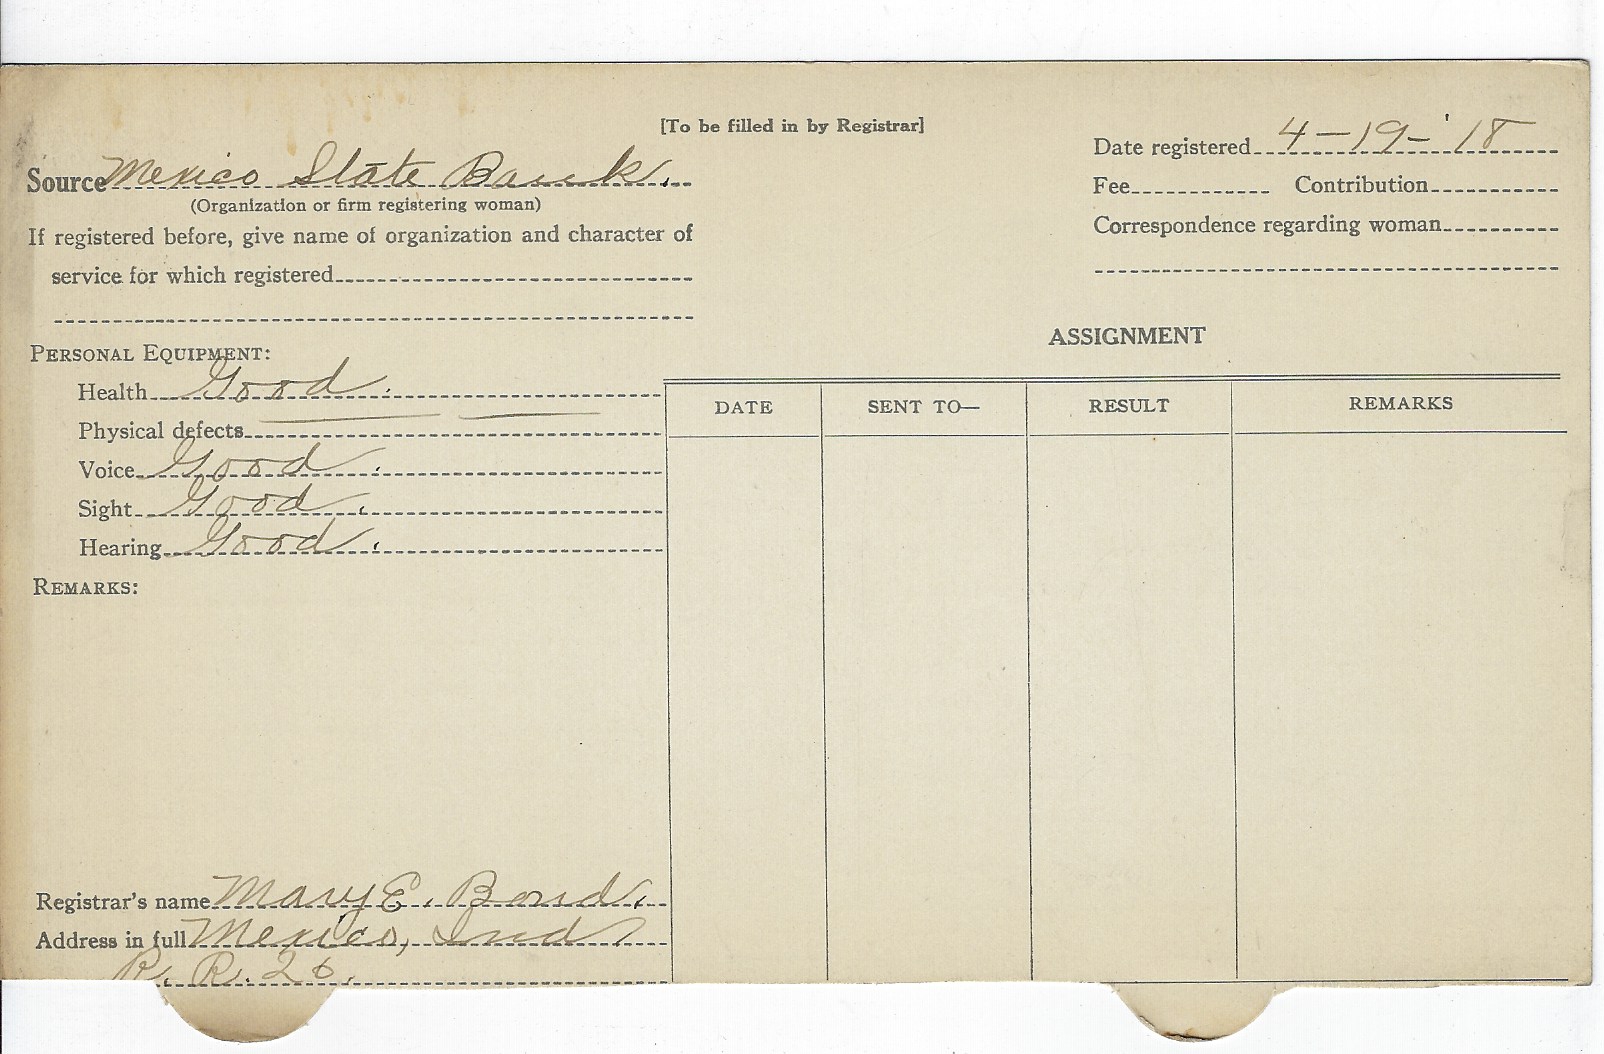 [To be filled in by Registrar]
Source Mexico State Bank.
(Organization or firm registering woman)
If registered before, give name of organization and character of
service for which registered
Date registered 4-19-'18
Fee Contribution
Correspondence regarding woman
PERSONAL EQUIPMENT:
Health Good.
Physical defects
Voice Good.
Sight Good.
Hearing Good.
REMARKS:
Registrar's name Mary E. Bond.
Address in full Mexico, Ind
R. R. 26.
ASSIGNMENT
DATE SENT TO— RESULT REMARKS